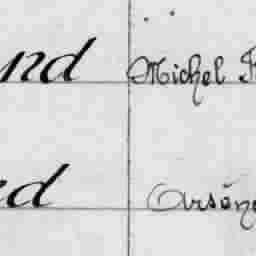 nd Michel
ed Arsène